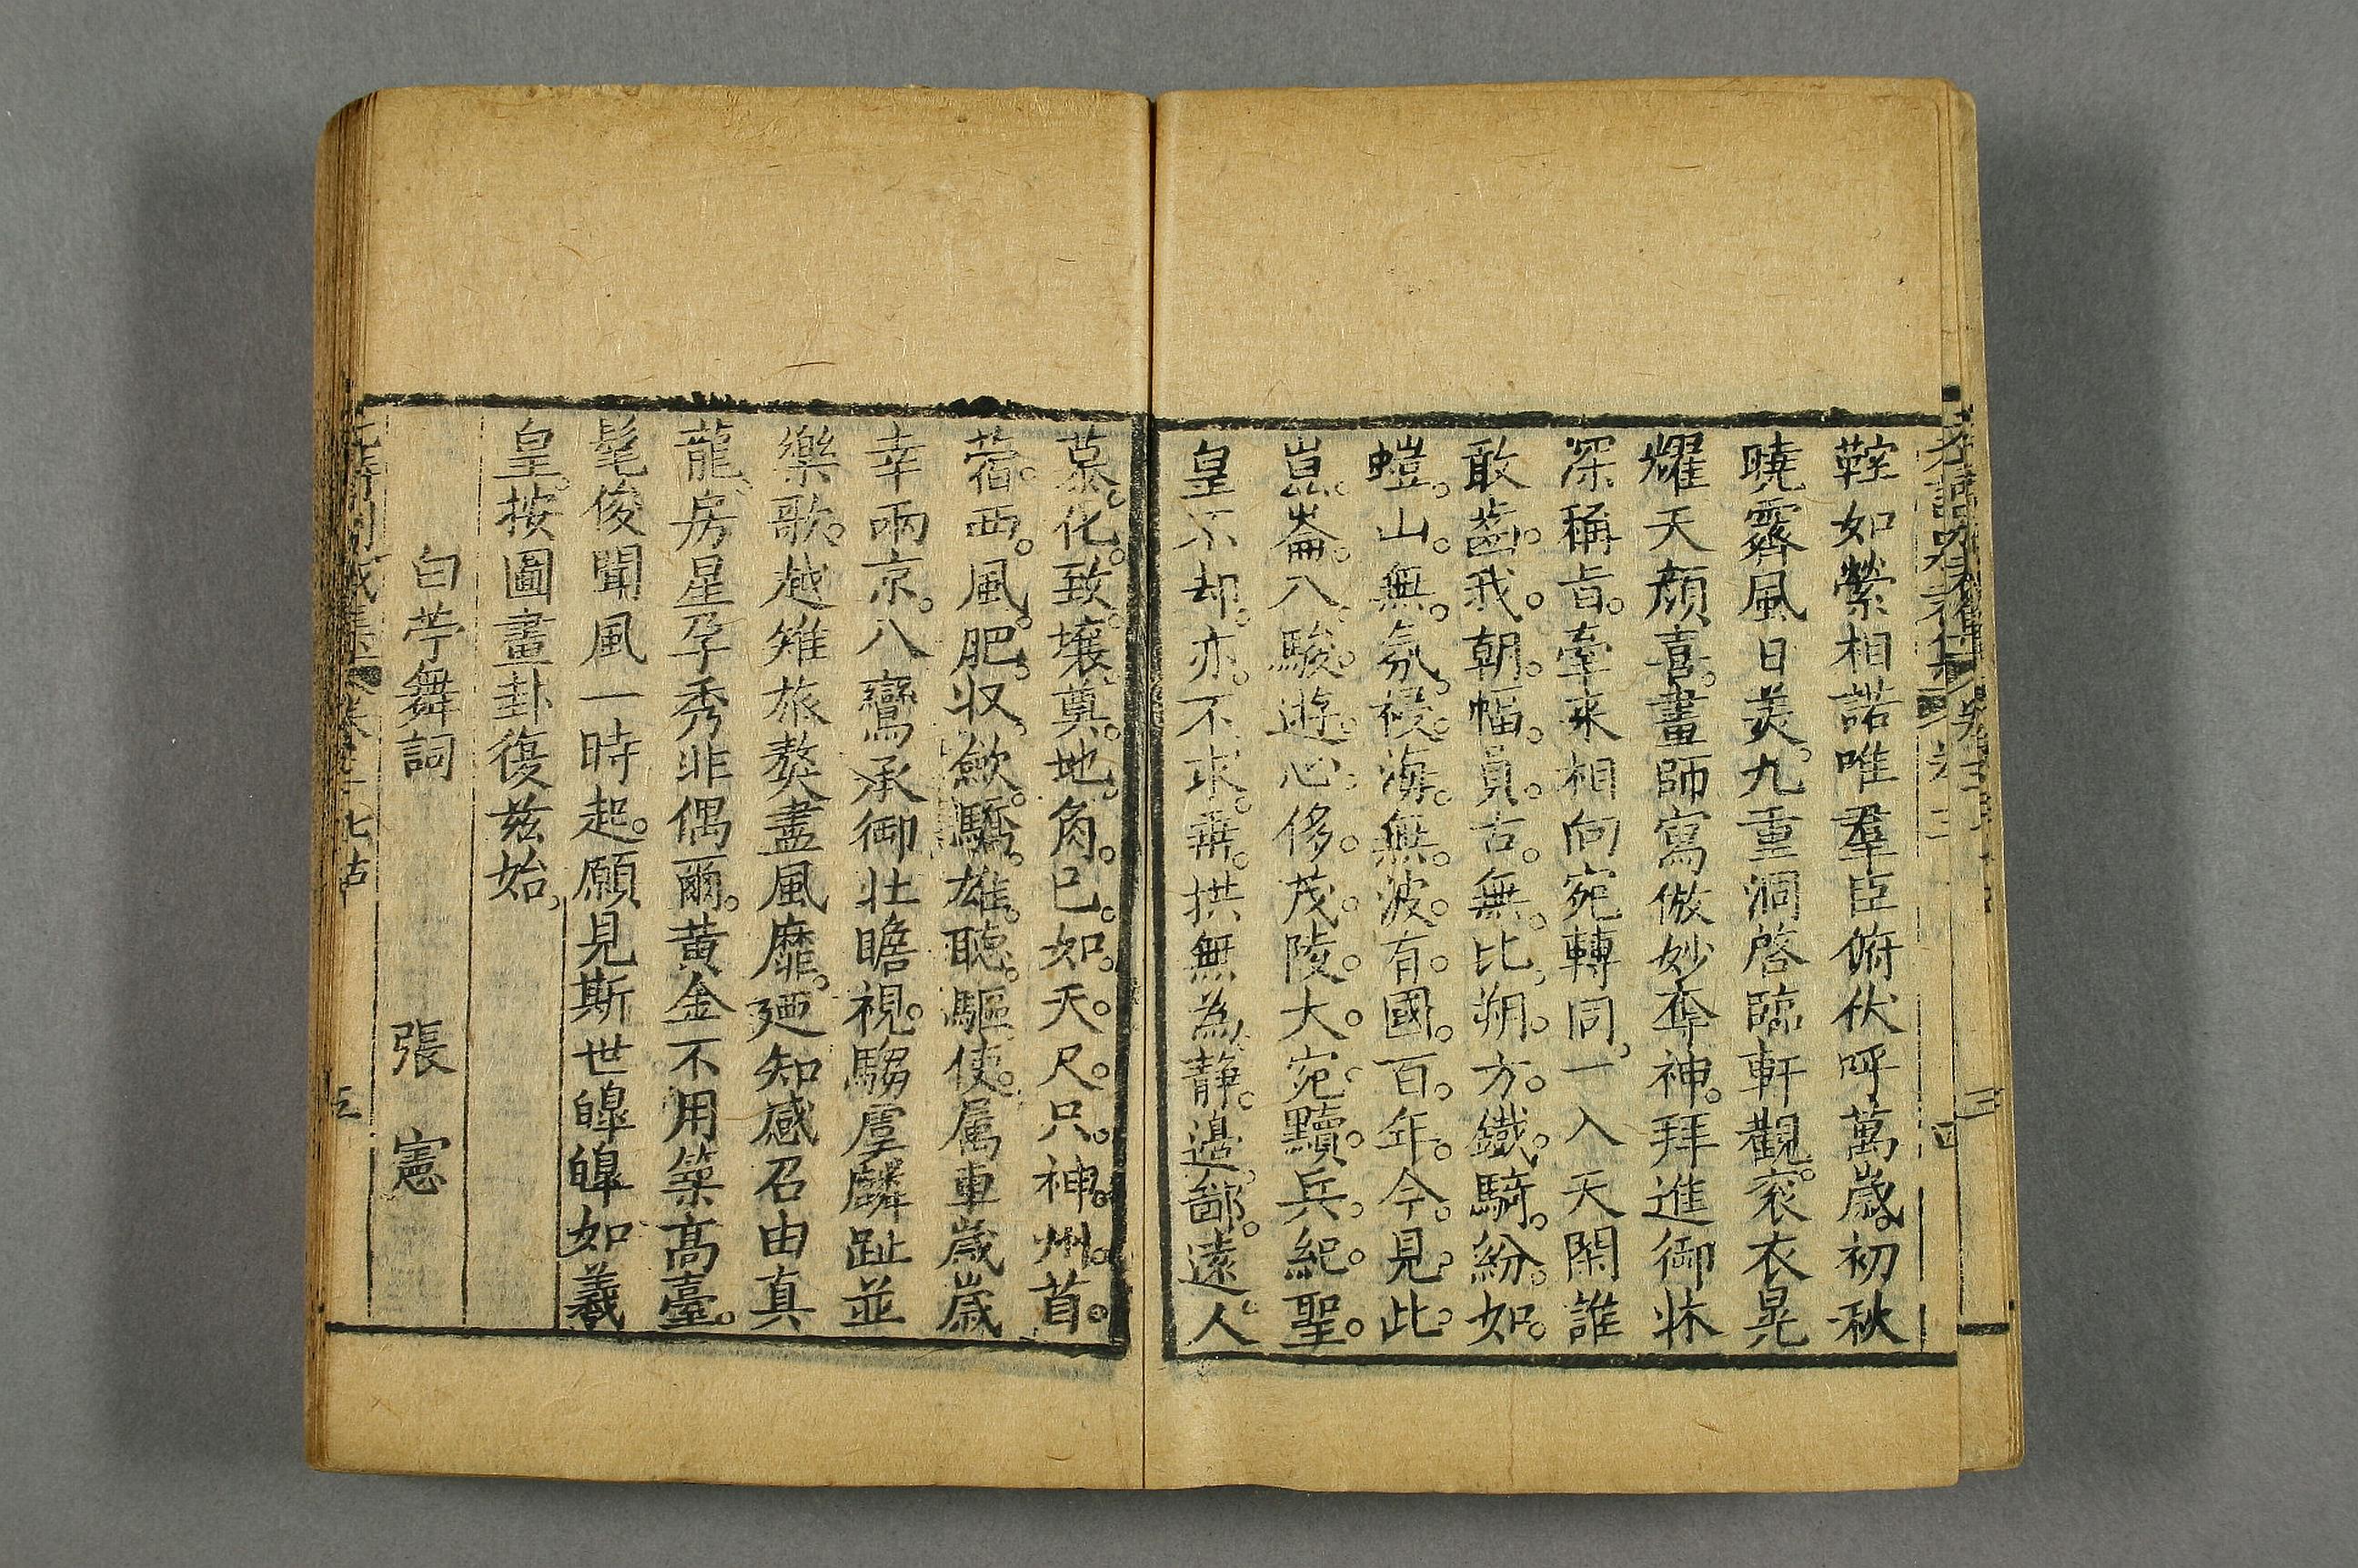 鞚如縈相諾唯羣臣俯伏呼萬歲初秋
曉霽風日美九重洞啓臨軒觀衮衣晃
耀天顔喜畫師寫倣妙奪神拜進御牀
深稱旨牽來相向宛轉同一入天閑誰
敢齒我朝幅員古無比朔方鐵騎紛如
螘山無氛祲海無波有國百年今見此
崑崙八駿遊心侈茂陵大宛黷兵紀聖
皇不却亦不求垂拱無為静邉鄙遠人
慕化致壤奠地角已如天尺只神州苜
蓿西風肥収歛驕雄聴驅使属車歲歲
幸兩京八鸞承御壮瞻視騶虞麟趾並
樂歌越雉旅獒盡風靡廼知感召由真
龍房星孕秀非偶爾黄金不用築髙臺
髦俊聞風一時起願見斯世皥皥如羲
皇按圖畫卦復兹始
白苧舞詞　張　憲